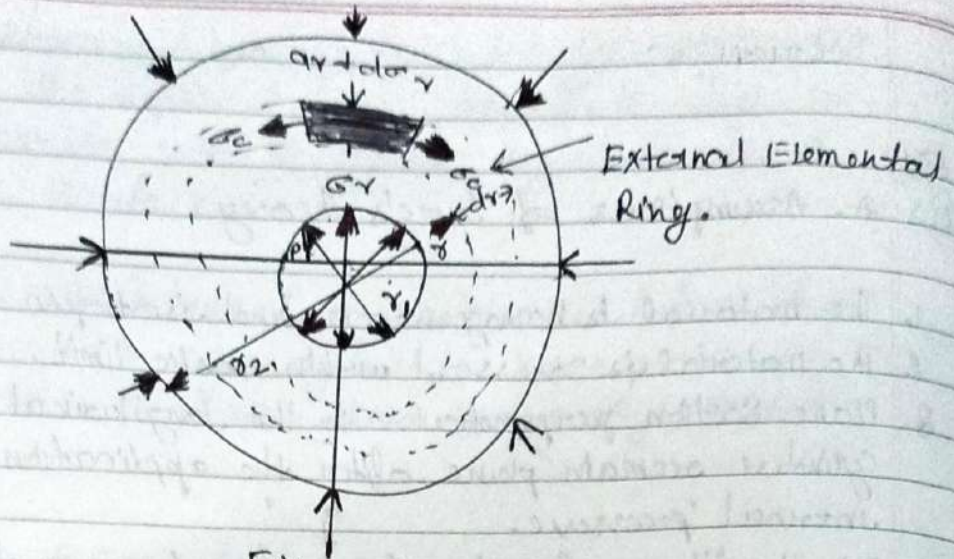 σr + dσr
σc
σc
External Elemental
Ring.
σr
dr
r
P
r1
r2